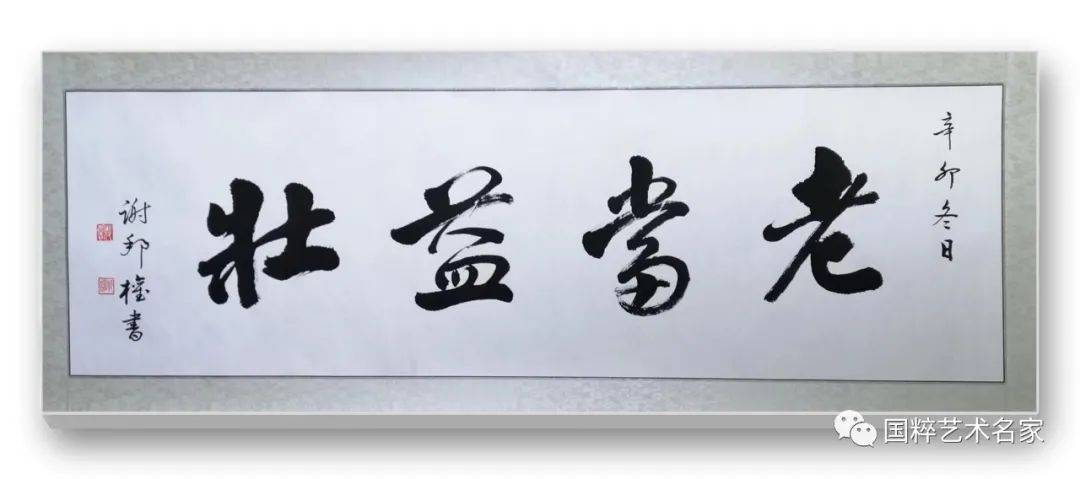 辛卯冬日
老當益壯
谢邦權書
国粹艺术名家